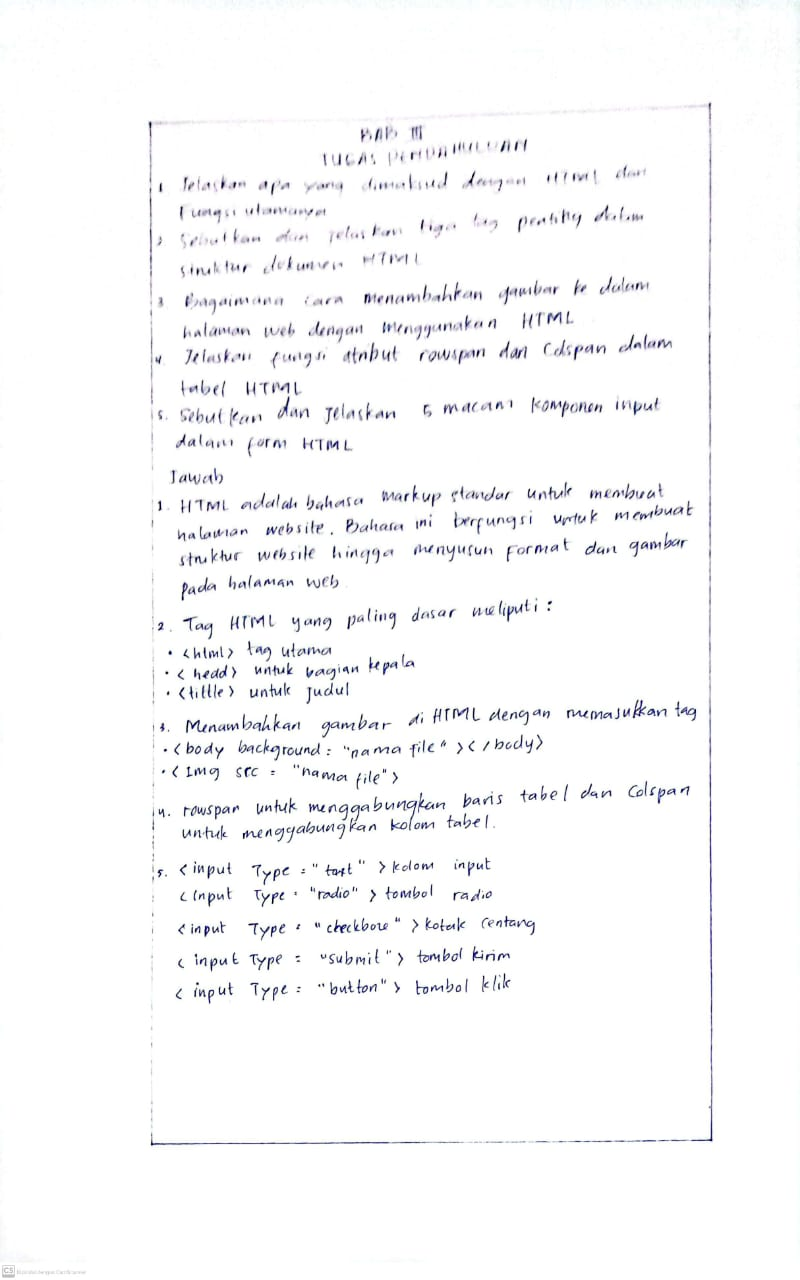 BAB III
TUGAS PENDAHULUAN
1. Jelaskan apa yang dimaksud dengan HTML dan
Fungsi utamanya
2. Sebutkan dan jelaskan tiga tag penting dalam
struktur dokumen HTML
3. Bagaimana cara menambahkan gambar ke dalam
halaman web dengan menggunakan HTML
4. Jelaskan fungsi atribut rowspan dan Colspan dalam
tabel HTML
5. Sebutkan dan Jelaskan 5 macam komponen input
dalam form HTML
Jawab
1. HTML adalah bahasa markup standar untuk membuat
halaman website. Bahasa ini berfungsi untuk membuat
struktur website hingga menyusun format dan gambar
pada halaman web
2. Tag HTML yang paling dasar meliputi :
• <html> tag utama
• < hedd> untuk bagian kepala
• <tittle> untuk judul
3. Menambahkan gambar di HTML dengan memasukkan tag
• <body background : "nama file" ></body>
• < Img src = "nama file">
4. rowspan untuk menggabungkan baris tabel dan Colspan
untuk menggabungkan kolom tabel.
5. <input Type = "text" > kolom input
<Input Type = "radio" > tombol radio
<input Type = "checkboxe" > kotak centang
< input Type = "submit"> tombol kirim
< input Type = "button"> tombol klik
CS Dipindai dengan CamScanner